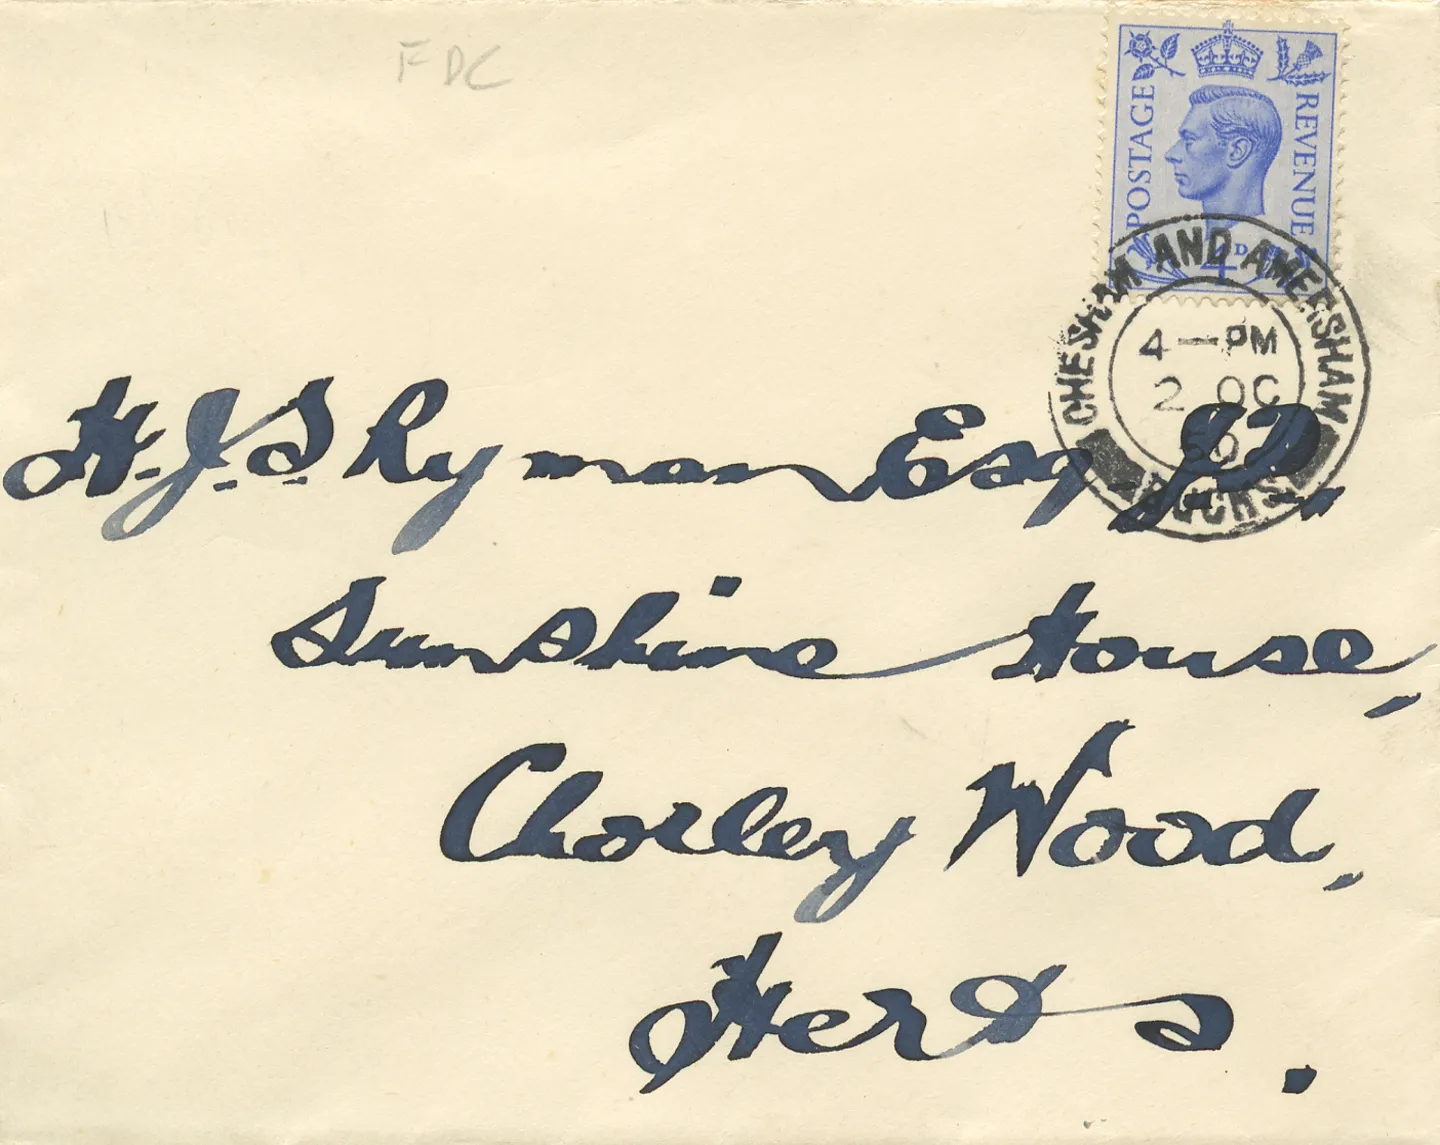 FDC
POSTAGE
REVENUE
4D
CHESHAM AND AMERSHAM
4-PM
2 OC
50
BUCKS
H.J.S. Ryman Esq. J.P.,
Sunshine House,
Chorley Wood,
Herts.